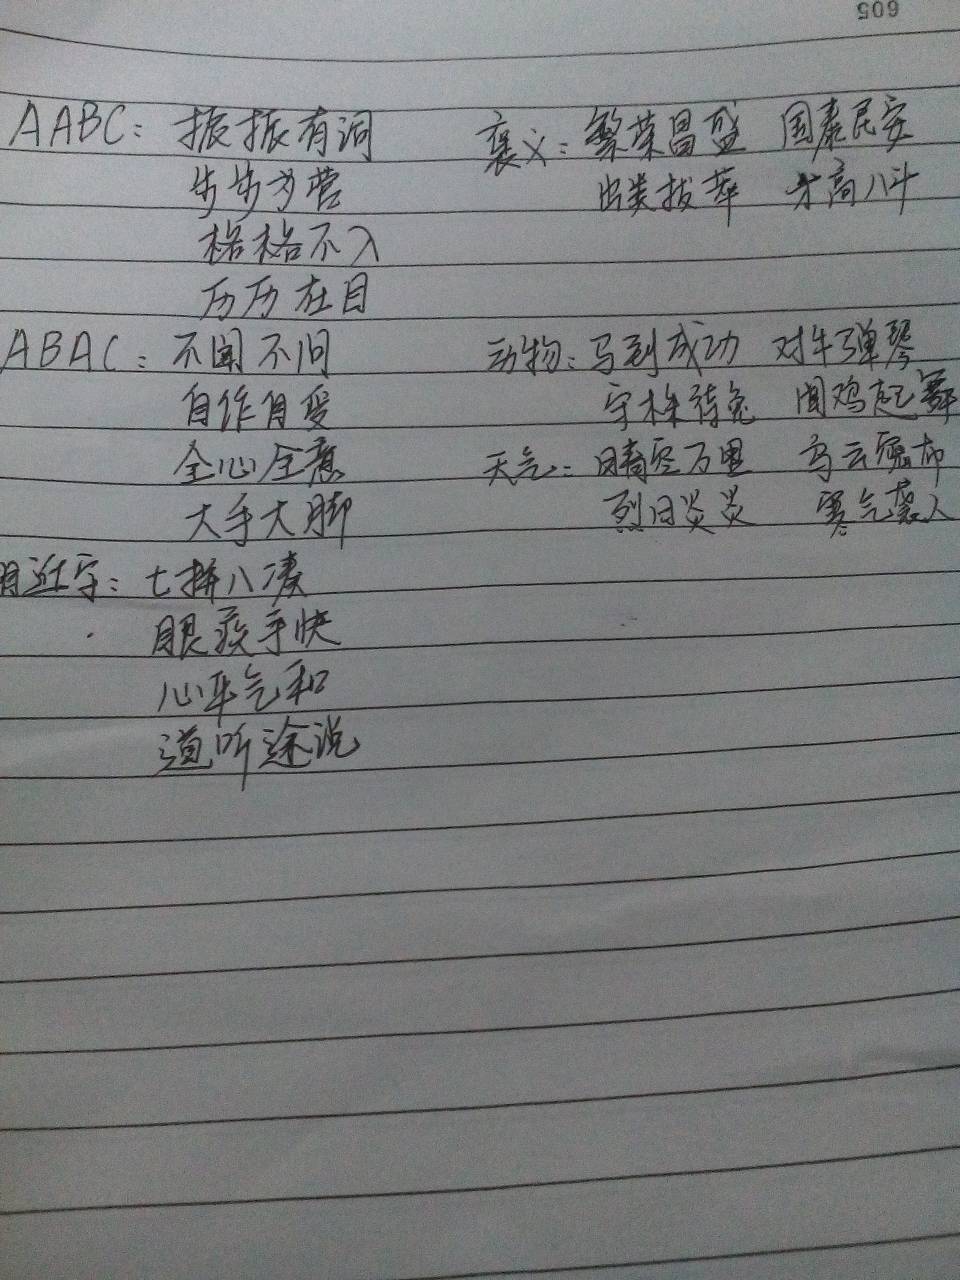 605
AABC：振振有词
步步为营
格格不入
历历在目
ABAC：不闻不问
自作自受
全心全意
大手大脚
近字：七拼八凑
眼疾手快
心平气和
道听途说
褒义：繁荣昌盛 国泰民安
出类拔萃 才高八斗
动物：马到成功 对牛弹琴
守株待兔 闻鸡起舞
天气：晴空万里 乌云密布
烈日炎炎 寒气袭人